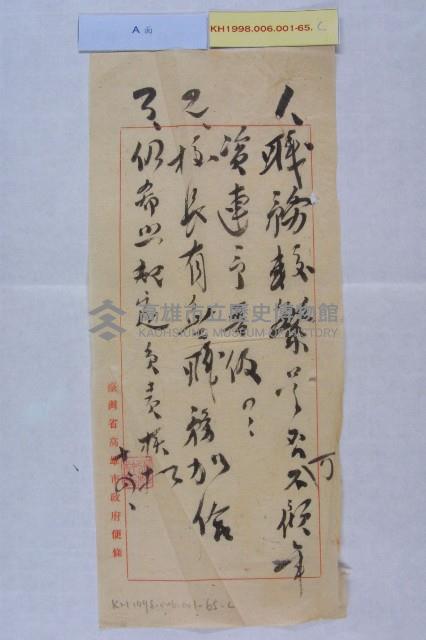 A面
KH1998.006.001-65. C
人職務較繁可否不顧年
資連予晉級
乙、校長有無職務加給
了、仍希照規定負責
十四、
臺灣省高雄市政府便條
高雄市立歷史博物館
KAOHSIUNG MUSEUM OF HISTORY
KH1998.006.001-65-C